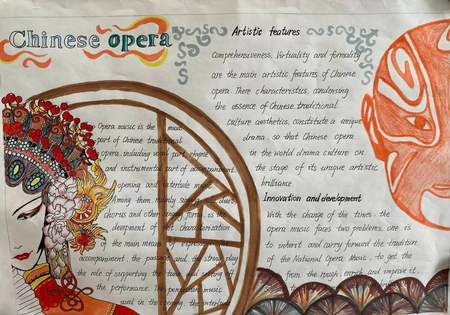 Chinese opera
Opera music is the main
part of Chinese traditional
opera, including vocal part, rhyme
and instrumental part of accompaniment
opening and interlude music.
Among them, mainly singing duet,
Chorus and other singing forms is the
development of characterization
of the main means of expression
accompaniment, the passage and the string play
the role of supporting the tune and setting off
the performance. The percussion music
used in the opening, the interlude
Artistic features
Comprehensiveness, Virtuality and formality
are the main artistic features of Chinese
opera. These characteristics, condensing
the essence of Chinese traditional
culture aesthetics, constitute a unique
drama, so that Chinese opera
in the world drama culture on
the stage of its unique artistic
brilliance.
Innovation and development
With the change of the times, the
opera music faces two problems, one is
to inherit and carry forward the tradition
of the National Opera Music, to get the
from the rough, enrich and improve it.